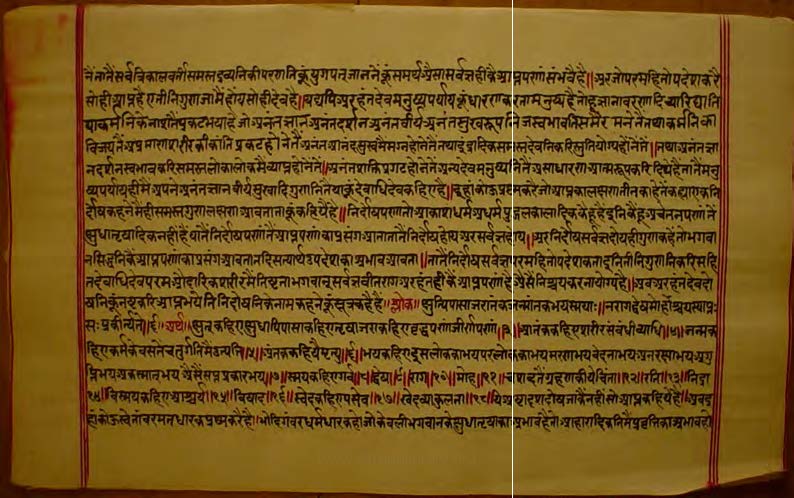 नैं नांनैं सर्व त्रिकालवर्ती समस्त द्रव्यनिकी परणतिकूं युगपत् जाननेंकूं समर्थ ऐसा सर्वज्ञ हीकै आप्तपणां संभवै है॥ अर जो परमहितोपदेश करै
सो ही आप्त है ए तीनि गुण जामैं होंय सो ही देव है॥ यद्यपि अरहंतदेव मनुष्यपर्यायकूं धारण करता मनुष्य है तोहू ज्ञानावरणादि च्यारि घाति
याकर्मनिके नाशतैं प्रकट भया है जो अनंतज्ञान अनंतदर्शन अनंतवीर्य अनंतसुखरूप निजस्वभाव तिसमें रमनेंतैं तथा कर्मनिका
विजयतैं अप्रमाण शरीरकी कांति प्रकट होनेतैं अनंतज्ञान सुखमैं मग्न होनेतैं तथा इंद्रादिक समस्त देवनिकरि स्तुतियोग्य होनेतैं॥ तथा अनंतज्ञा
नदर्शनस्वभावकरि समस्त लोकालोकमैं व्याप्त होनेतैं॥ अनंतशक्ति प्रगट होनेतैं अन्यदेव मनुष्यनितैं असाधारण आत्मरूपकरि दिपै है तातैं मनु
ष्यपर्यायहीमैं अपने अनंतज्ञानवीर्यसुखादिगुणनितैं याकूं देवाधिदेव कहिए है॥ इहां कोऊ प्रश्न करै जो आप्तका लक्षण तीन काहेतैं कह्या एक नि
र्दोष कहनेमैं ही समस्त गुण लक्षण आवता ताकूं कहिये है॥ निर्दोषपणां तो आकाश धर्म अधर्म पुद्गल कालादिककै हू है इनिकैं हू अचेतनपणातैं
क्षुधातृषादिक नहीं है यातैं निर्दोषपणांतैं आप्तपणांका प्रसंग आता तातैं निर्दोष होय अर सर्वज्ञ होय॥ अर निर्दोष सर्वज्ञ दोय ही गुण कहैं तो भगवा
न सिद्धनिकैं आप्तपणांका प्रसंग आवता तदि सत्यार्थ उपदेशका अभाव आवता॥ तातैं निर्दोष सर्वज्ञ परमहितोपदेशकता इनि तीनि गुणनिकरि सहि
त देवाधिदेव परमऔदारिकशरीरमैं तिष्ठता भगवान् सर्वज्ञ वीतराग अरहंत हीकैं आप्तपणां है ऐसैं निश्चय करना योग्य है॥ अब अरहंतदेव दो
षनिकूं नष्ट करि आप्त भये तिनि दोषनिके नाम कहनेकूं सूत्र कहै है॥ श्लोक॥ क्षुत्पिपासाजरातंकजन्मांतकभयस्मयाः॥ न रागद्वेषमोहाश्च यस्याप्तः
सः प्रकीर्त्यते॥६॥ अर्थ॥ क्षुत् कहिए क्षुधा पिपासा कहिए तृषा जरा कहिए वृद्धपणां जीर्णपणां॥३॥ आतंक कहिए शरीरसंबंधी व्याधि॥४॥ जन्म क
हिए कर्मके वसतैं चतुर्गतिमैं उत्पत्ति॥५॥ अंतक कहिये मृत्यु॥६॥ भय कहिए इसलोकका भय परलोकका भय मरणभय वेदनाभय अनरक्षाभय अगु
प्तिभय अकस्मात् भय ऐसैं सप्त प्रकार भय॥७॥ स्मय कहिए गर्व॥८॥ द्वेष॥९॥ राग॥१०॥ मोह॥११॥ च शब्दतैं ग्रहण कीये चिंता॥१२॥ रति॥१३॥ निद्रा
१४॥ विस्मय कहिए आश्चर्य॥१५॥ विषाद॥१६॥ स्वेद कहिए पसेव॥१७॥ खेद व्याकुलता॥१८॥ ये अष्टादश दोष जाकैं नहीं सो आप्त कहिये है॥ अब इ
हां कोऊ स्वेतांबर मतधारक प्रश्न करै है॥ भो दिगंबरधर्मधारक हो जो केवली भगवानके क्षुधातृषाका अभाव है तो आहारादिकनिमैं प्रवृत्तिका अभाव हो